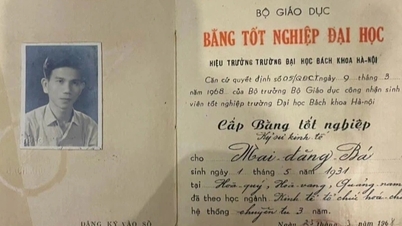 BỘ GIÁO DỤC
BẰNG TỐT NGHIỆP ĐẠI HỌC
HIỆU TRƯỞNG TRƯỜNG ĐẠI HỌC BÁCH KHOA HÀ-NỘI
Căn cứ quyết định số 05/QĐCT ngày 9 tháng 3
năm 1968 của Bộ trưởng Bộ Giáo dục công nhận sinh
viên tốt nghiệp trường Đại học Bách khoa Hà-nội
Cấp Bằng tốt nghiệp
Kỹ sư kinh tế
cho Mai đăng Bá
sinh ngày 1 tháng 5 năm 1931
tại Hoà quý, Hoà vang, Quảng nam
đã theo học ngành Kinh tế tổ chức hóa
hệ thống chuyên tu 3 năm.
Ngày 25 tháng 3 năm 1968
ĐĂNG KÝ VÀO SỔ